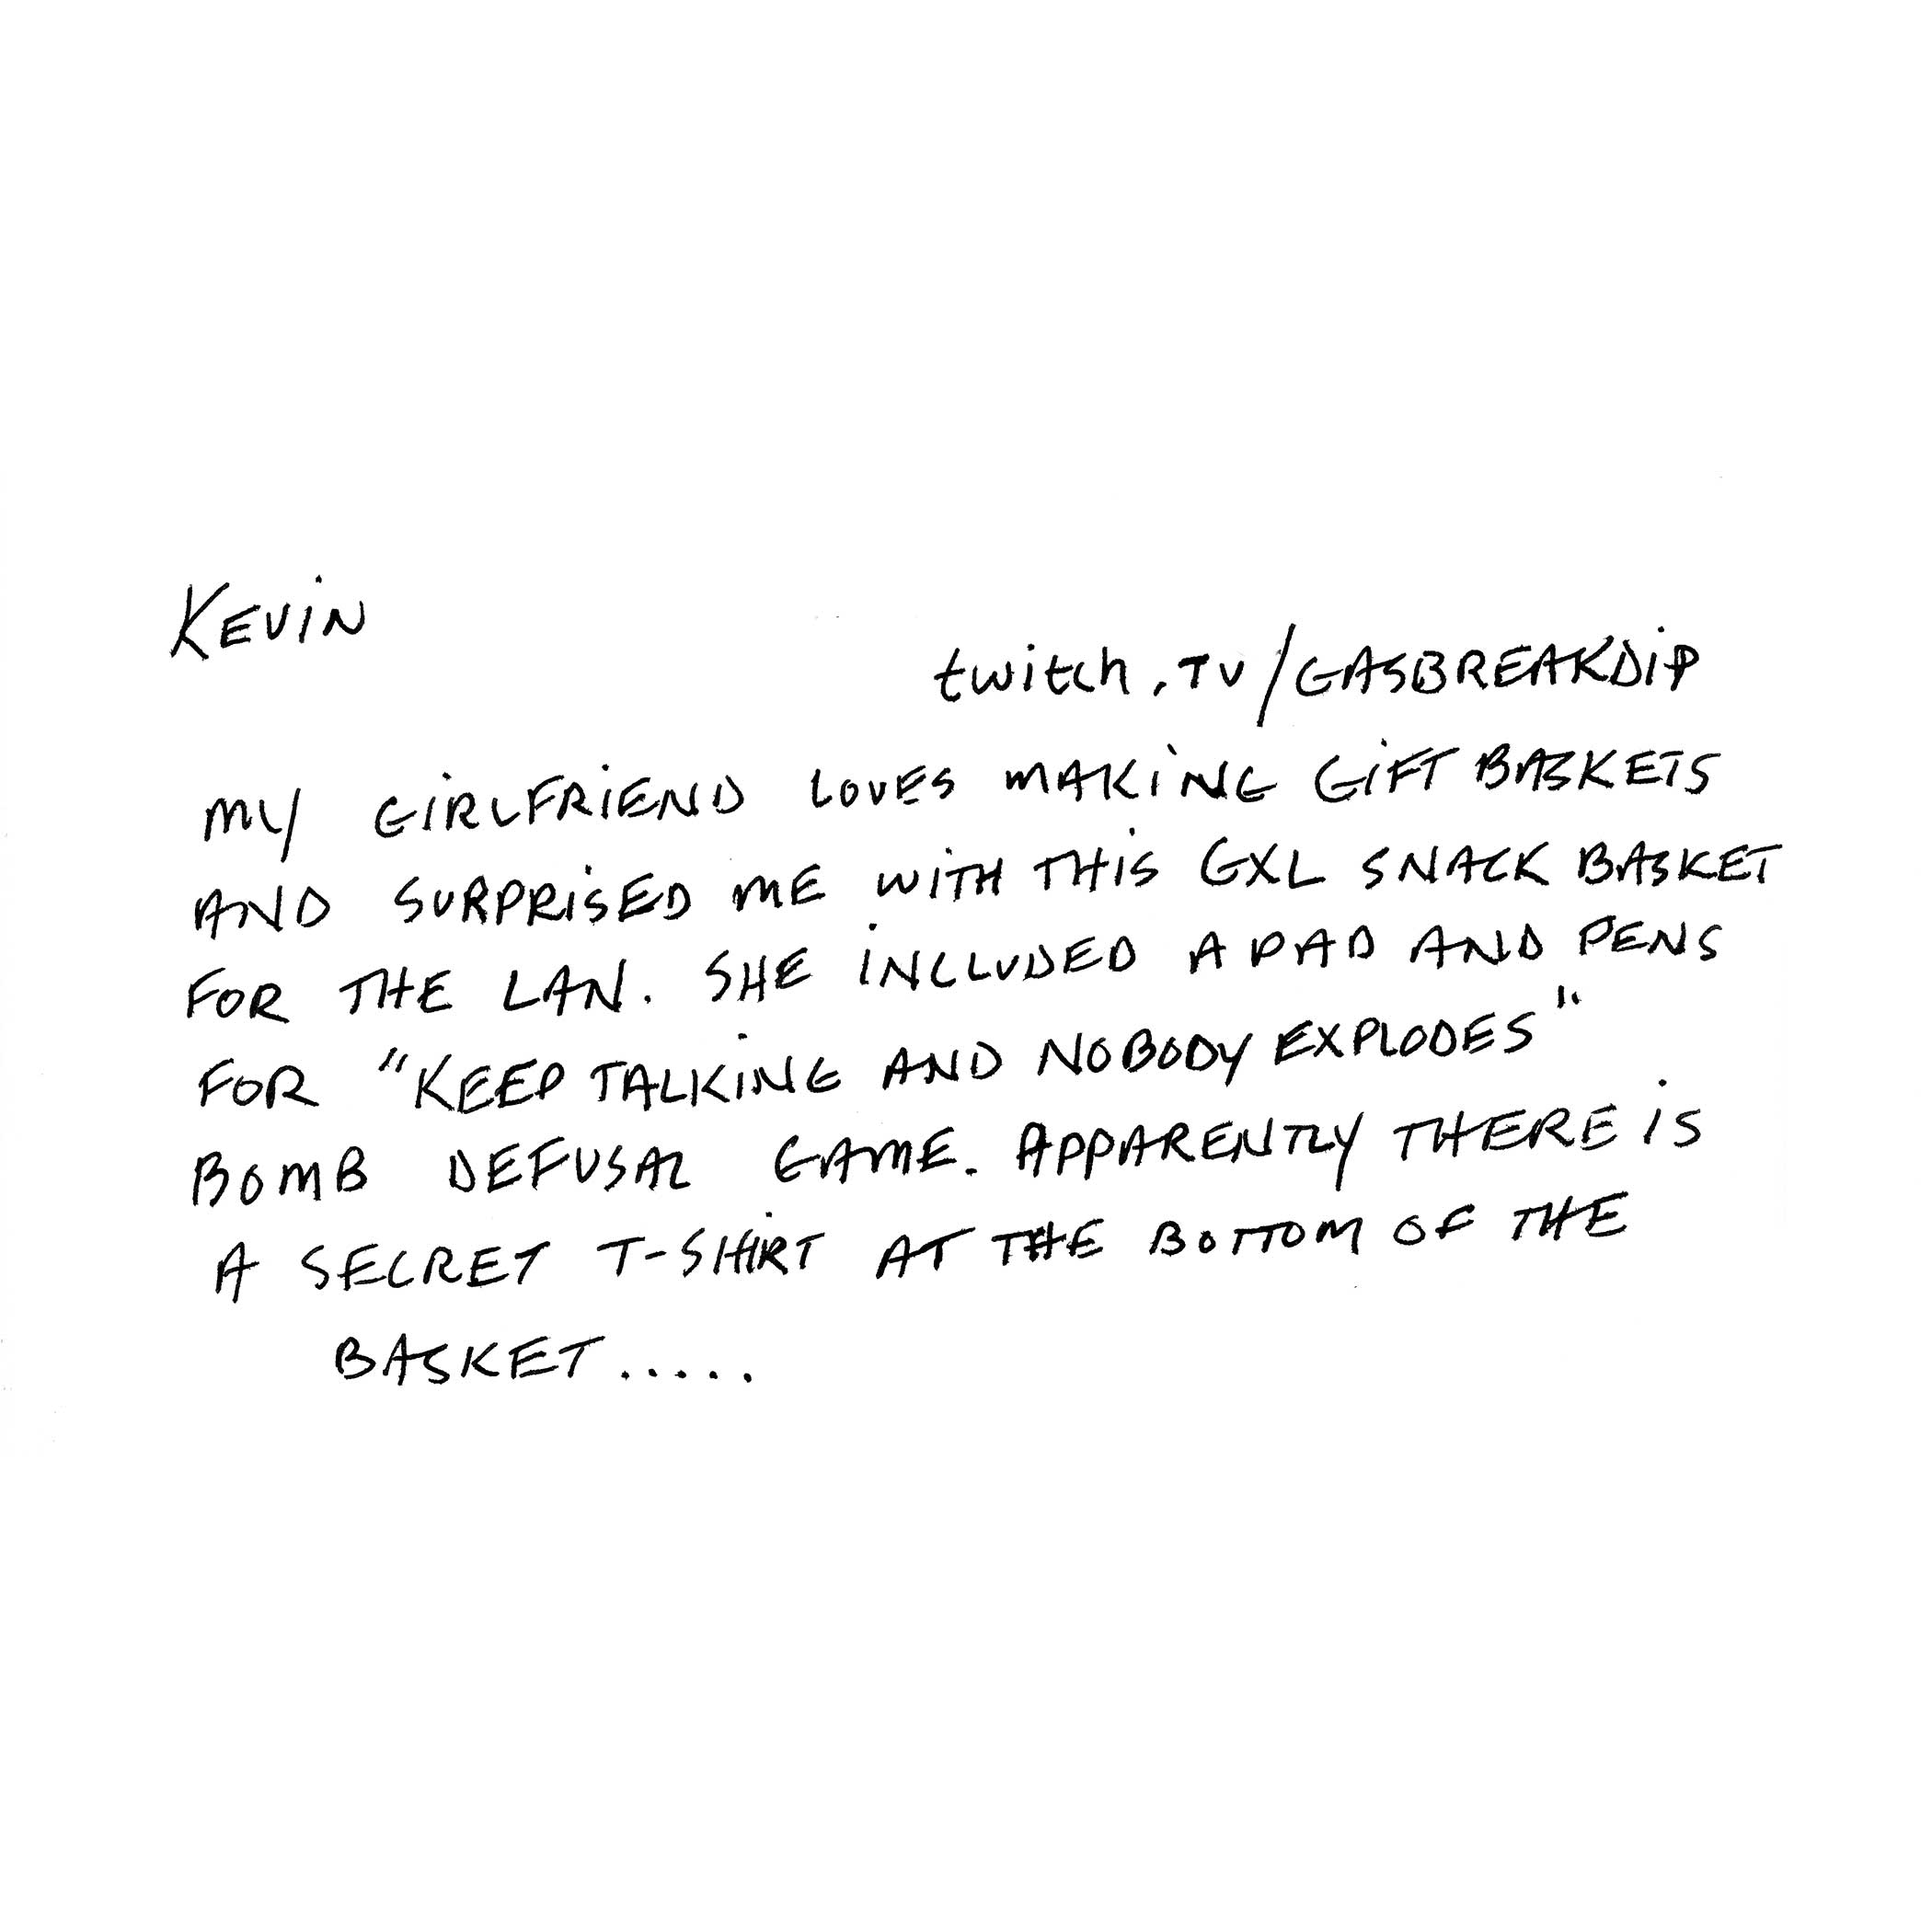 KEViN
twitch.TV/GASBREAKDiP
MY GiRLFRiEND LOVES MAKiNG GiFT BASKETS
AND SURPRiSED ME WiTH THiS GXL SNACK BASKET
FOR THE LAN. SHE iNCLUDED A PAD AND PENS
FOR "KEEP TALKiNG AND NOBODY EXPLODES"
BOMB DEFUSAL GAME. APPARENTLY THERE iS
A SECRET T-SHiRT AT THE BOTTOM OF THE
BASKET.....